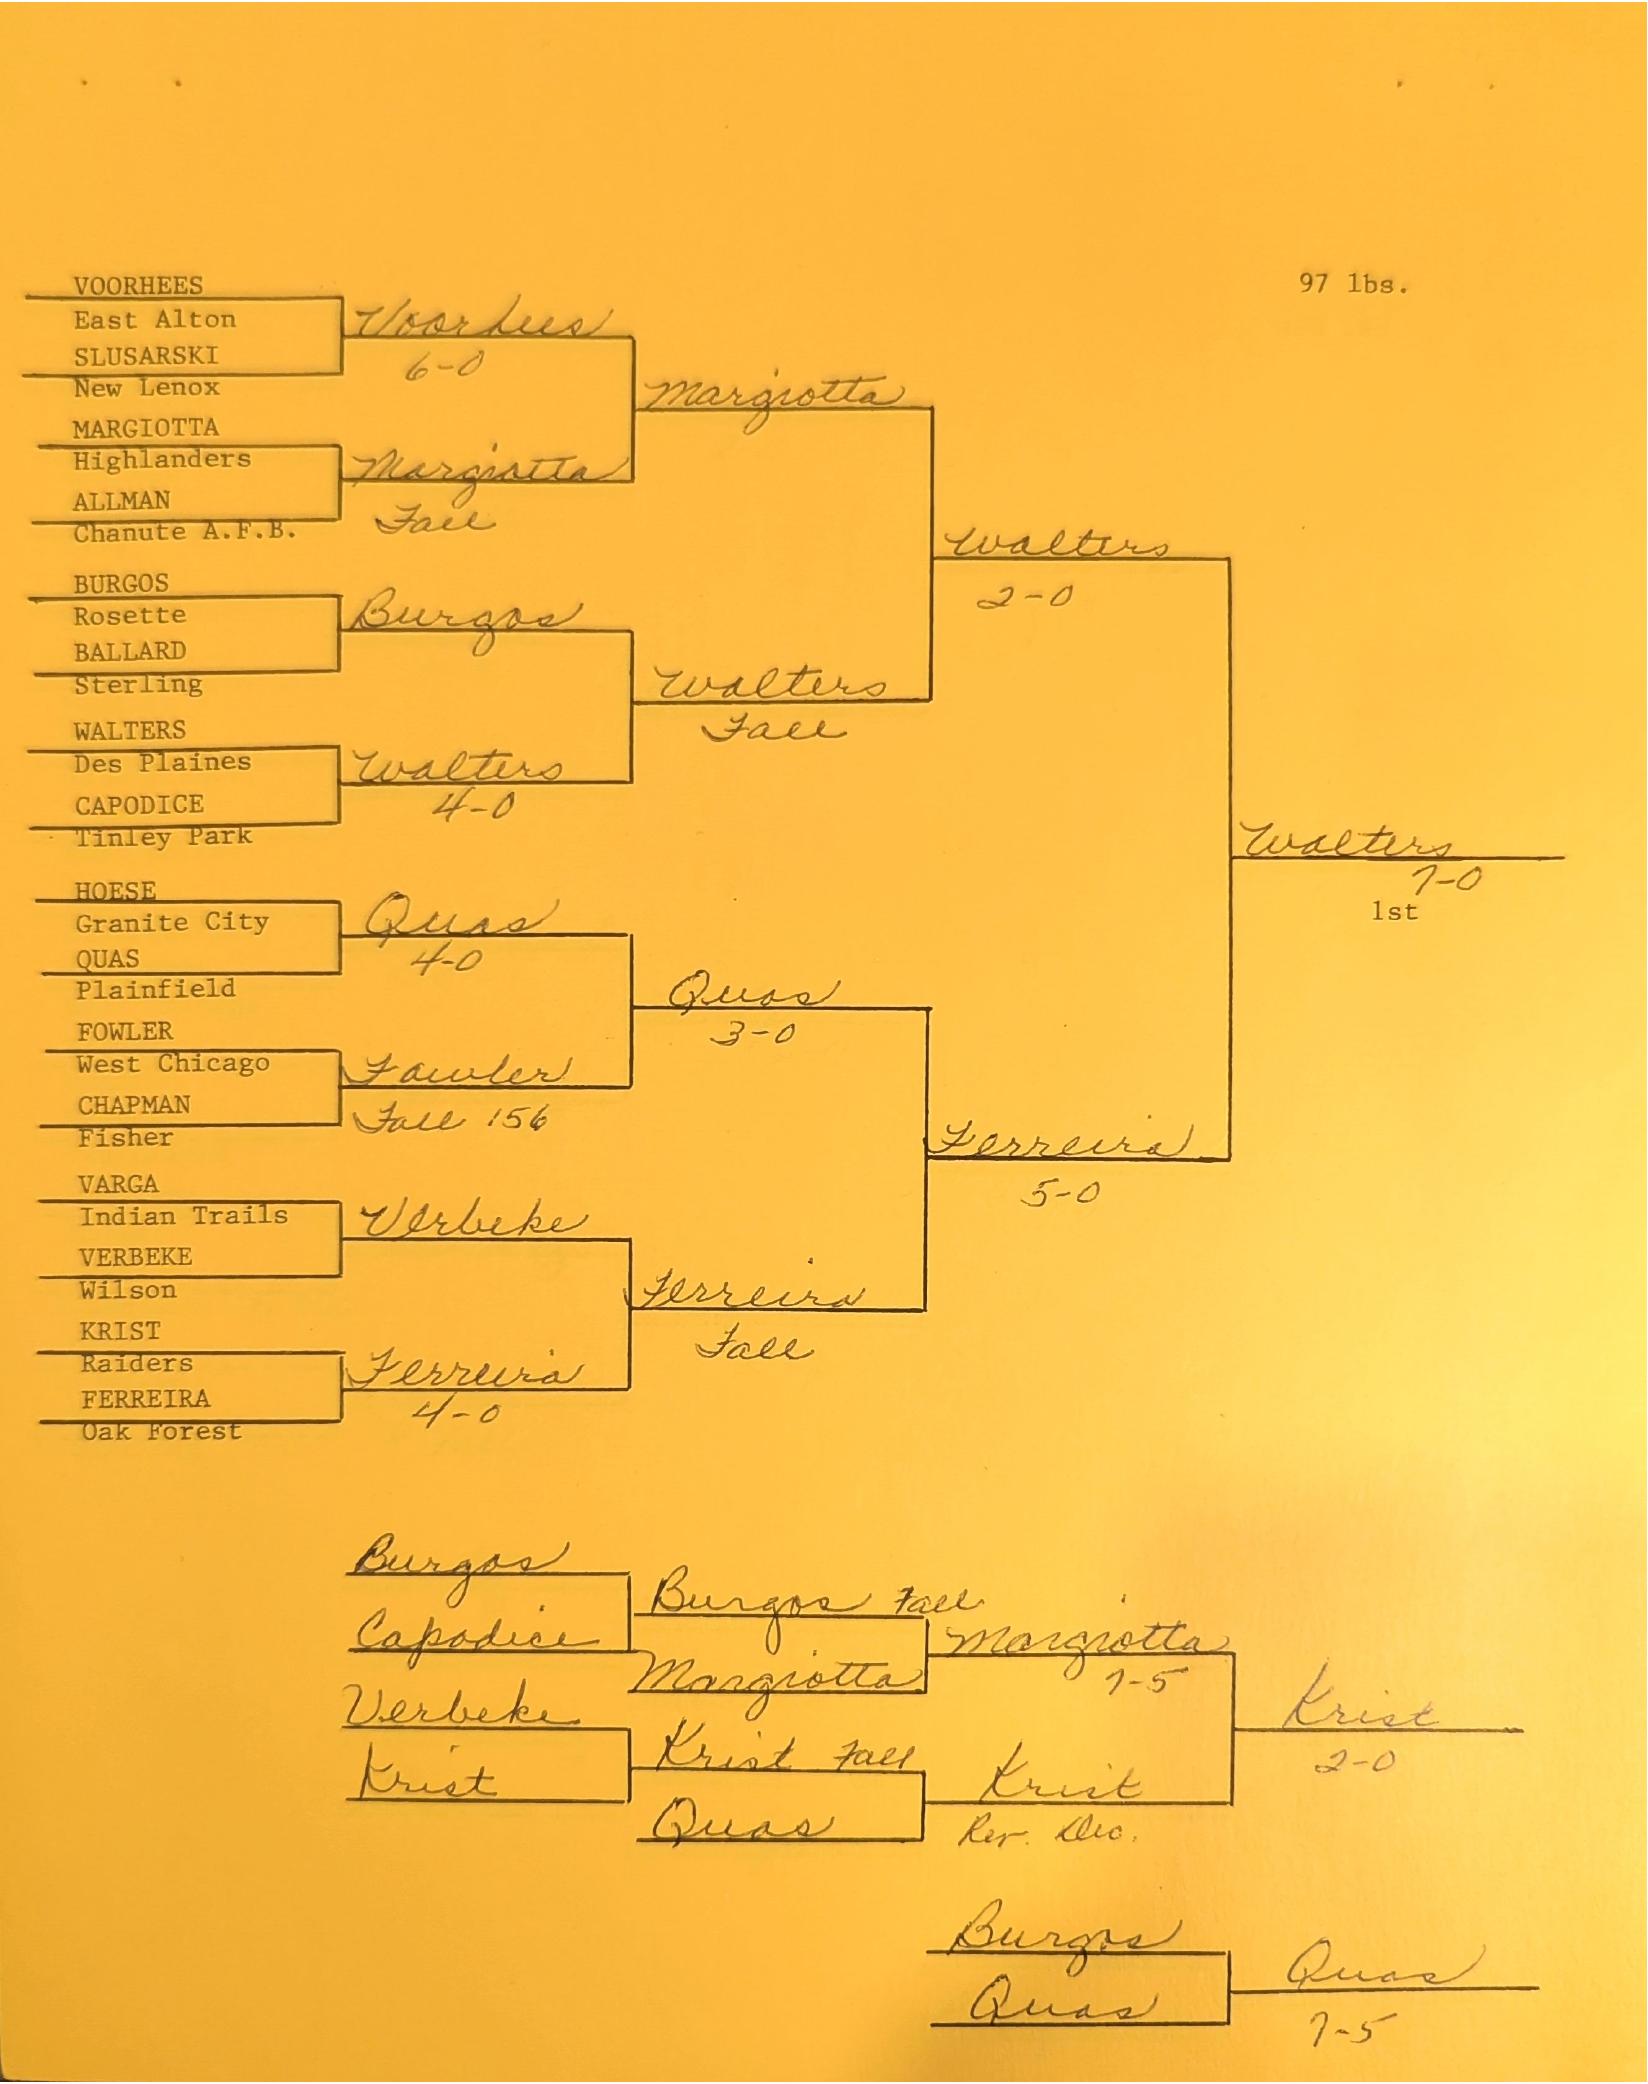 97 lbs.
VOORHEES
East Alton
SLUSARSKI
New Lenox
MARGIOTTA
Highlanders
ALLMAN
Chanute A.F.B.
BURGOS
Rosette
BALLARD
Sterling
WALTERS
Des Plaines
CAPODICE
Tinley Park
HOESE
Granite City
QUAS
Plainfield
FOWLER
West Chicago
CHAPMAN
Fisher
VARGA
Indian Trails
VERBEKE
Wilson
KRIST
Raiders
FERREIRA
Oak Forest
Voorhees
6-0
Margiotta
Fall
Burgos
Walters
4-0
Quas
4-0
Fowler
Fall 156
Verbeke
Ferreira
4-0
Margiotta
Walters
Fall
Quas
3-0
Ferreira
Fall
Walters
2-0
Ferreira
5-0
Walters
7-0
1st
Burgos
Capodice
Verbeke
Krist
Burgos Fall
Margiotta
Krist Fall
Quas
Margiotta
7-5
Krist
Rev. Dec.
Krist
2-0
Burgos
Quas
Quas
7-5